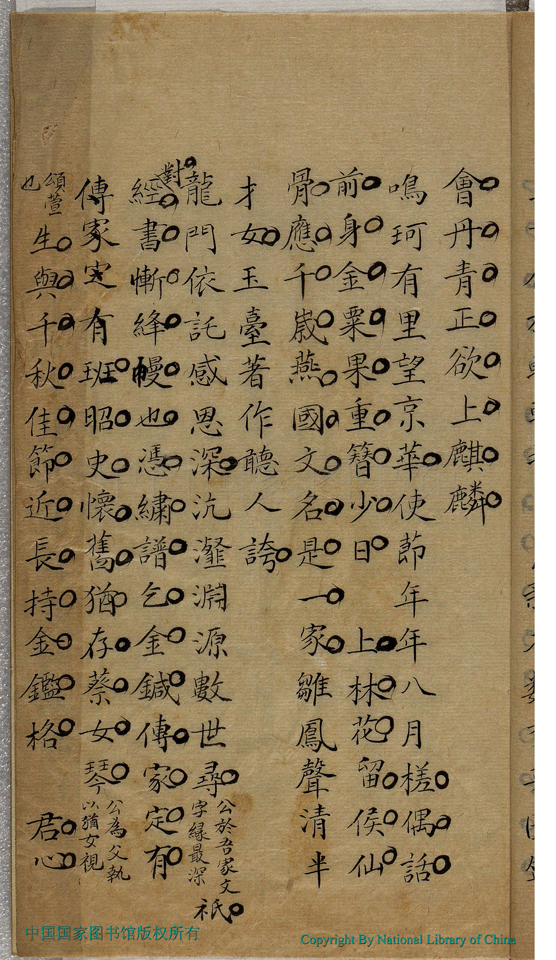 會丹青正欲上麒麟
鳴珂有里望京華使節年年八月槎偶話
前身金粟果重簪少日 上林花留侯仙
骨應千歲燕國文名是一家雛鳳聲清半
才女玉臺著作聽人誇
龍門依託感恩深沆瀣淵源數世尋 公於吾家文字緣最深 祇
對經書慚絳幔也憑繡譜乞金鍼傳家定有
傳家定有班昭史懷舊猶存蔡女琴 公為父執以猶女視
頌萱也 生與千秋佳節近長持金鑑格 君心
中国国家图书馆版权所有
Copyright By National Library of China